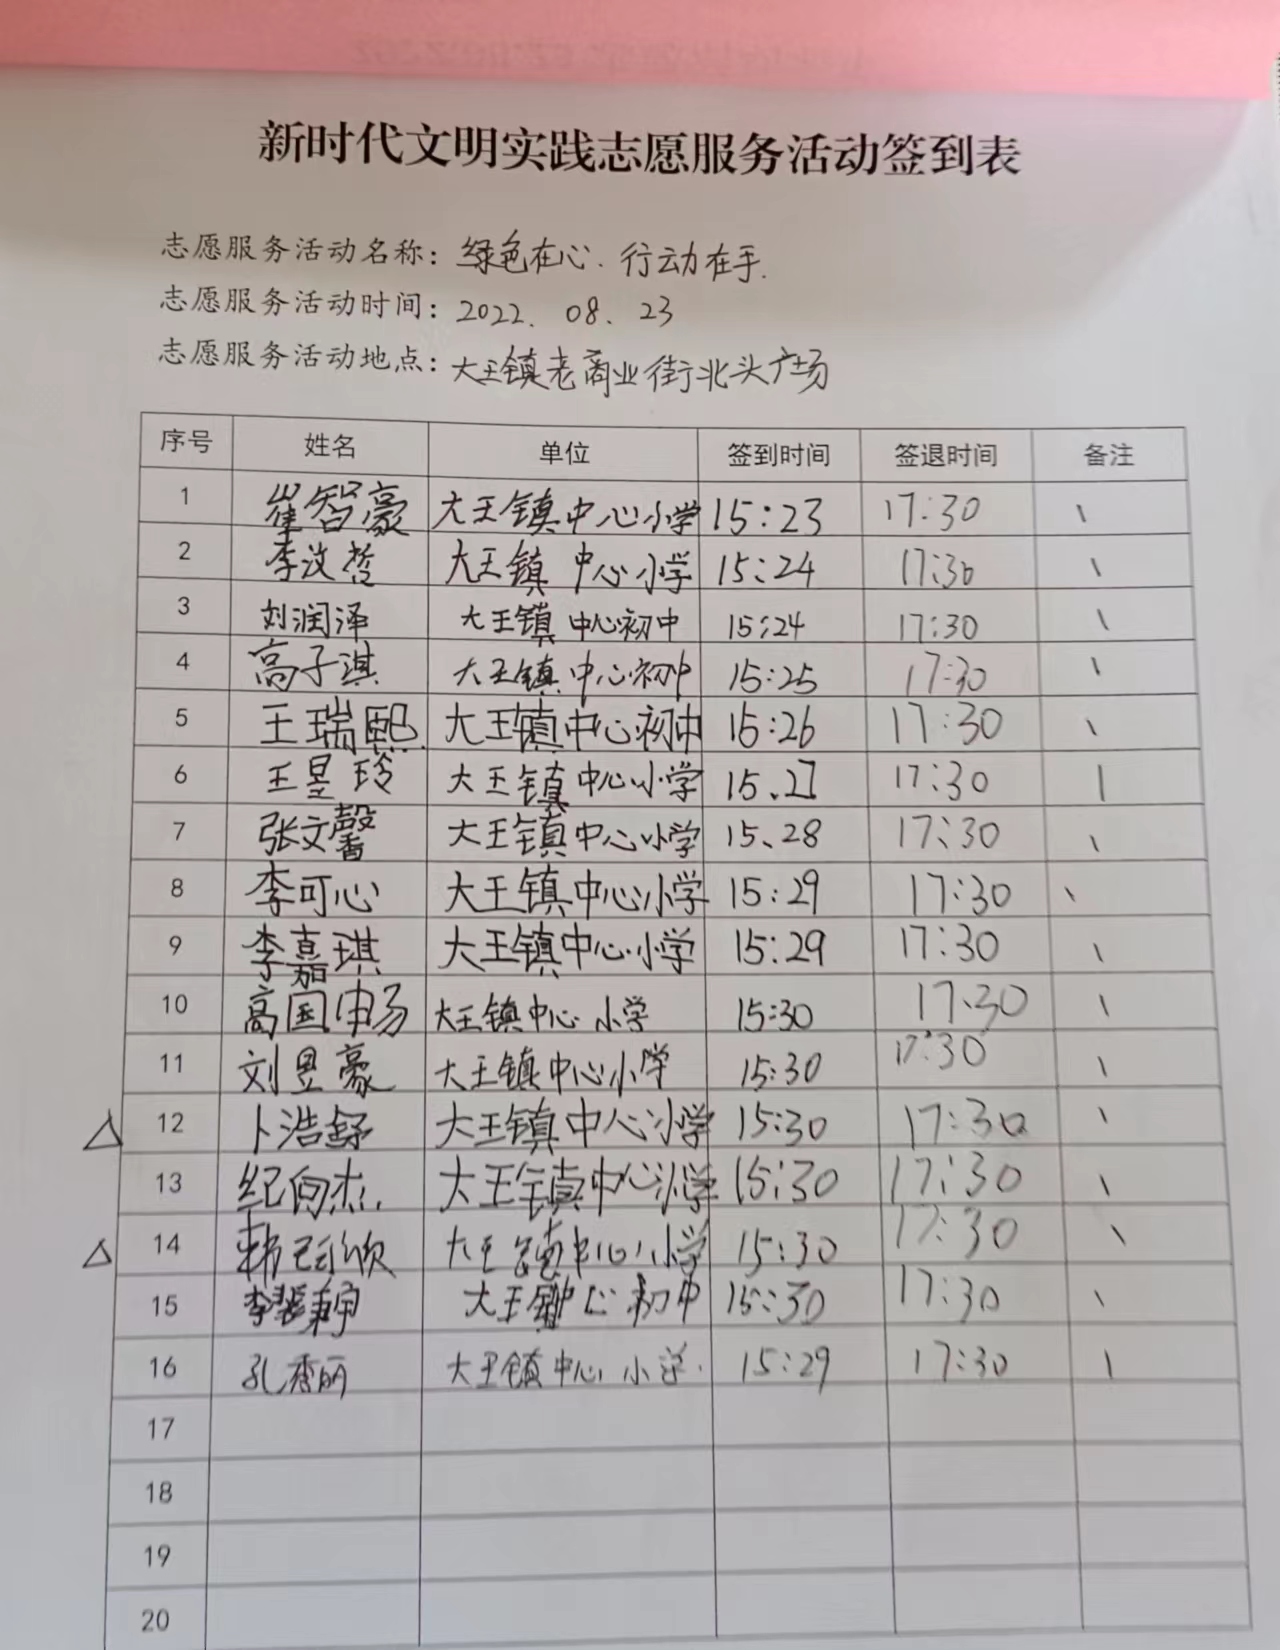 新时代文明实践志愿服务活动签到表
志愿服务活动名称：绿色在心.行动在手.
志愿服务活动时间：2022.08.23
志愿服务活动地点：大王镇老商业街北头广场
序号 姓名 单位 签到时间 签退时间 备注
1 崔智豪 大王镇中心小学 15:23 17:30 \
2 李汶哲 大王镇中心小学 15:24 17:30 \
3 刘润泽 大王镇中心初中 15:24 17:30 \
4 高子淇 大王镇中心初中 15:25 17:30 \
5 王瑞熙 大王镇中心初中 15:26 17:30 \
6 王昱玲 大王镇中心小学 15、27 17:30 |
7 张文馨 大王镇中心小学 15、28 17:30 \
8 李可心 大王镇中心小学 15:29 17:30 \
9 李嘉琪 大王镇中心小学 15:29 17:30 \
10 高国申易 大王镇中心小学 15:30 17:30 \
11 刘昱豪 大王镇中心小学 15:30 17:30 \
△ 12 卜浩舒 大王镇中心小学 15:30 17:30 \
13 纪向杰 大王镇中心小学 15:30 17:30 \
△ 14 韩 大王镇中心小学 15:30 17:30 \
15 李 大王镇中心初中 15:30 17:30 \
16 孔秀丽 大王镇中心小学. 15:29 17:30 \
17
18
19
20